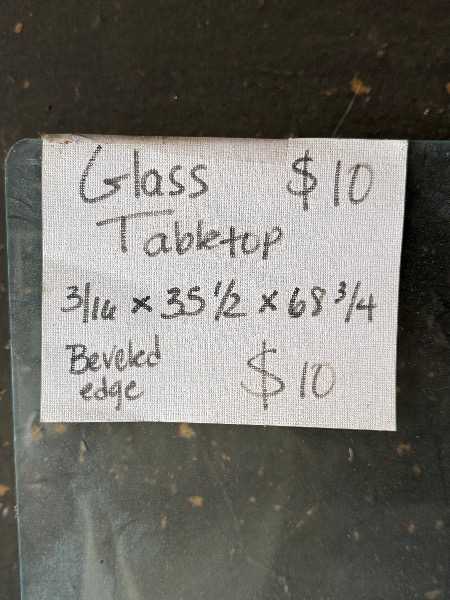 Glass $10
Tabletop
3/16 x 35 1/2 x 68 3/4
Beveled
edge $10